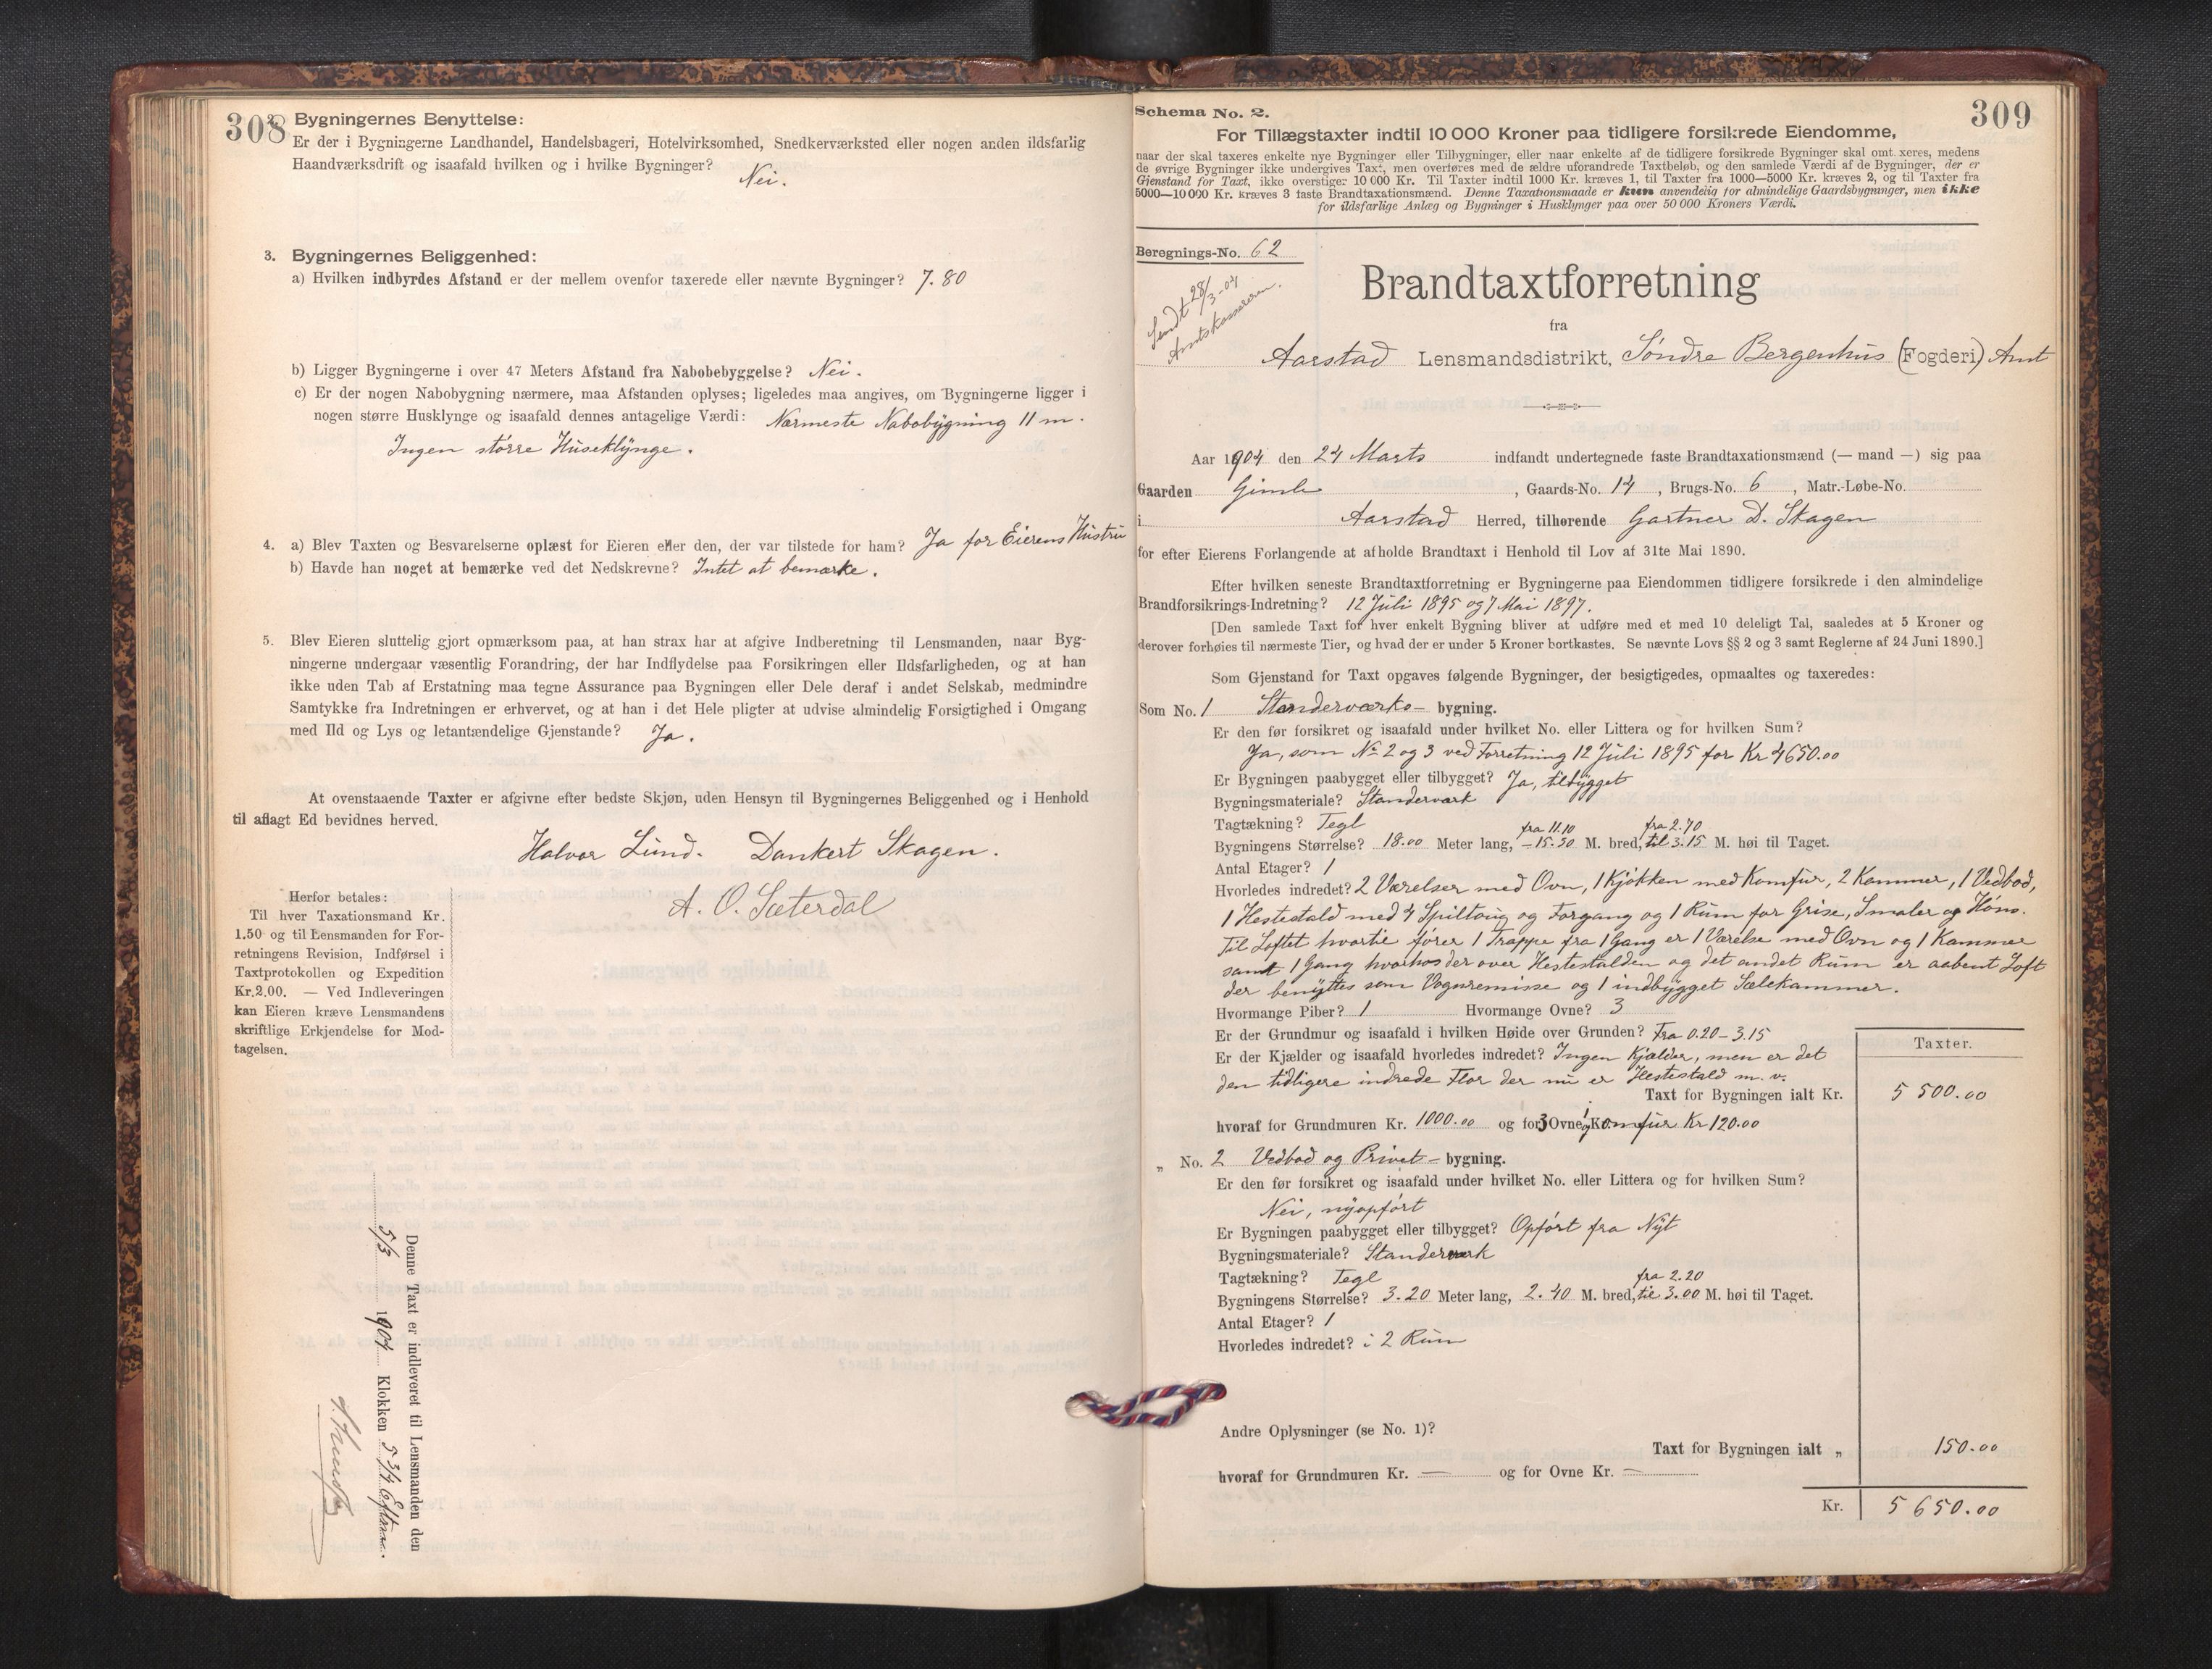 308
2. Bygningernes Benyttelse:
Er der i Bygningerne Landhandel, Handelsbageri, Hotelvirksomhed, Snedkerværksted eller nogen anden ildsfarlig
Haandværksdrift og isaafald hvilken og i hvilke Bygninger?
Nei.
3. Bygningernes Beliggenhed:
a) Hvilken indbyrdes Afstand er der mellem ovenfor taxerede eller nævnte Bygninger? 7.80
b) Ligger Bygningerne i over 47 Meters Afstand fra Nabobebyggelse? Nei.
c) Er der nogen Nabobygning nærmere, maa Afstanden oplyses; ligeledes maa angives, om Bygningerne ligger i
nogen større Husklynge og isaafald dennes antagelige Værdi: Nærmeste Nabobygning 11 m.
Ingen større Huseklynge.
4. a) Blev Taxten og Besvarelserne oplæst for Eieren eller den, der var tilstede for ham? Ja for Eierens Hustru
b) Havde han noget at bemærke ved det Nedskrevne? Intet at bemærke.
5. Blev Eieren sluttelig gjort opmærksom paa, at han strax har at afgive Indberetning til Lensmanden, naar Byg-
ningerne undergaar væsentlig Forandring, der har Indflydelse paa Forsikringen eller Ildsfarligheden, og at han
ikke uden Tab af Erstatning maa tegne Assurance paa Bygningen eller Dele deraf i andet Selskab, medmindre
Samtykke fra Indretningen er erhvervet, og at han i det Hele pligter at udvise almindelig Forsigtighed i Omgang
med Ild og Lys og letantændelige Gjenstande? Ja.
At ovenstaaende Taxter er afgivne efter bedste Skjøn, uden Hensyn til Bygningernes Beliggenhed og i Henhold
til aflagt Ed bevidnes herved.
Halvor Lund. Dankert Skagen.
A. O. Sæterdal
Herfor betales:
Til hver Taxationsmand Kr.
1.50 og til Lensmanden for For-
retningens Revision, Indførsel i
Taxtprotokollen og Expedition
Kr. 2.00. — Ved Indleveringen
kan Eieren kræve Lensmandens
skriftlige Erkjendelse for Mod-
tagelsen.
Denne Taxt er indleveret til Lensmanden den
5/3 1904 Klokken 5 3/4 Efterm.
Schema No. 2.
309
For Tillægstaxter indtil 10 000 Kroner paa tidligere forsikrede Eiendomme,
naar der skal taxeres enkelte nye Bygninger eller Tilbygninger, eller naar enkelte af de tidligere forsikrede Bygninger skal omt xeres, medens
de øvrige Bygninger ikke undergives Taxt, men overføres med de ældre uforandrede Taxtbeløb, og den samlede Værdi af de Bygninger, der er
Gjenstand for Taxt, ikke overstiger 10 000 Kr. Til Taxter indtil 1000 Kr. kræves 1, til Taxter fra 1000—5000 Kr. kræves 2, og til Taxter fra
5000—10 000 Kr. kræves 3 faste Brandtaxationsmænd. Denne Taxationsmaade er kun anvendelig for almindelige Gaardsbygninger, men ikke
for ildsfarlige Anlæg og Bygninger i Husklynger paa over 50 000 Kroners Værdi.
Beregnings-No. 62
Sendt 28/3-04
Amtskassereren.
Brandtaxtforretning
fra
Aarstad Lensmandsdistrikt, Søndre Bergenhus (Fogderi) Amt
Aar 1904 den 24 Marts indfandt undertegnede faste Brandtaxationsmænd (— mand —) sig paa
Gaarden Gimle, Gaards-No. 14, Brugs-No. 6, Matr.-Løbe-No.
i Aarstad Herred, tilhørende Gartner D. Skagen
for efter Eierens Forlangende at afholde Brandtaxt i Henhold til Lov af 31te Mai 1890.
Efter hvilken seneste Brandtaxtforretning er Bygningerne paa Eiendommen tidligere forsikrede i den almindelige
Brandforsikrings-Indretning? 12 Juli 1895 og 7 Mai 1897.
[Den samlede Taxt for hver enkelt Bygning bliver at udføre med et med 10 deleligt Tal, saaledes at 5 Kroner og
derover forhøies til nærmeste Tier, og hvad der er under 5 Kroner bortkastes. Se nævnte Lovs §§ 2 og 3 samt Reglerne af 24 Juni 1890.]
Som Gjenstand for Taxt opgaves følgende Bygninger, der besigtigedes, opmaaltes og taxeredes:
Som No. 1 Standerværks- bygning.
Er den før forsikret og isaafald under hvilket No. eller Littera og for hvilken Sum?
Ja, som No 2 og 3 ved Forretning 12 Juli 1895 for Kr 4650.00
Er Bygningen paabygget eller tilbygget? Ja, tilbygget
Bygningsmateriale? Standerværk
Tagtækning? Tegl
Bygningens Størrelse? 18.00 Meter lang, fra 11.10 - 15.50 M. bred, fra 2.70 til 3.15 M. høi til Taget.
Antal Etager? 1
Hvorledes indredet? 2 Værelser med Ovn, 1 Kjøkken med Komfur, 2 Kammer, 1 Vedbod,
1 Hestestald med 4 Spiltoug og Forgang og 1 Rum for Grise, Smaler og Høns.
Til Loftet hvortil fører 1 Trappe fra 1 Gang er 1 Værelse med Ovn og 1 Kammer
samt 1 Gang hvorhos der over Hestestalden og det andet Rum er aabent Loft
der benyttes som Vognremisse og 1 indbygget Sælekammer.
Hvormange Piber? 1 Hvormange Ovne? 3
Er der Grundmur og isaafald i hvilken Høide over Grunden? Fra 0.20 - 3.15
Er der Kjælder og isaafald hvorledes indredet? Ingen Kjælder, men er det
den tidligere indrede Flor der nu er Hestestald m. v.
Taxter.
Taxt for Bygningen ialt Kr. 5 500.00
hvoraf for Grundmuren Kr. 1000.00 og for 3 Ovne og 1 Komfur Kr 120.00
„ No. 2 Vedbod og Privet- bygning.
Er den før forsikret og isaafald under hvilket No. eller Littera og for hvilken Sum?
Nei, nyopført
Er Bygningen paabygget eller tilbygget? Opført fra Nyt
Bygningsmateriale? Standerværk
Tagtækning? Tegl
Bygningens Størrelse? 3.20 Meter lang, 2.40 M. bred, fra 2.20 til 3.00 M. høi til Taget.
Antal Etager? 1
Hvorledes indredet? i 2 Rum
Andre Oplysninger (se No. 1)?
Taxt for Bygningen ialt „ 150.00
hvoraf for Grundmuren Kr. — og for Ovne Kr. —
Kr. 5 650.00